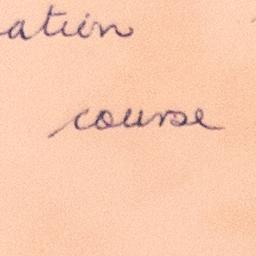 ation
course